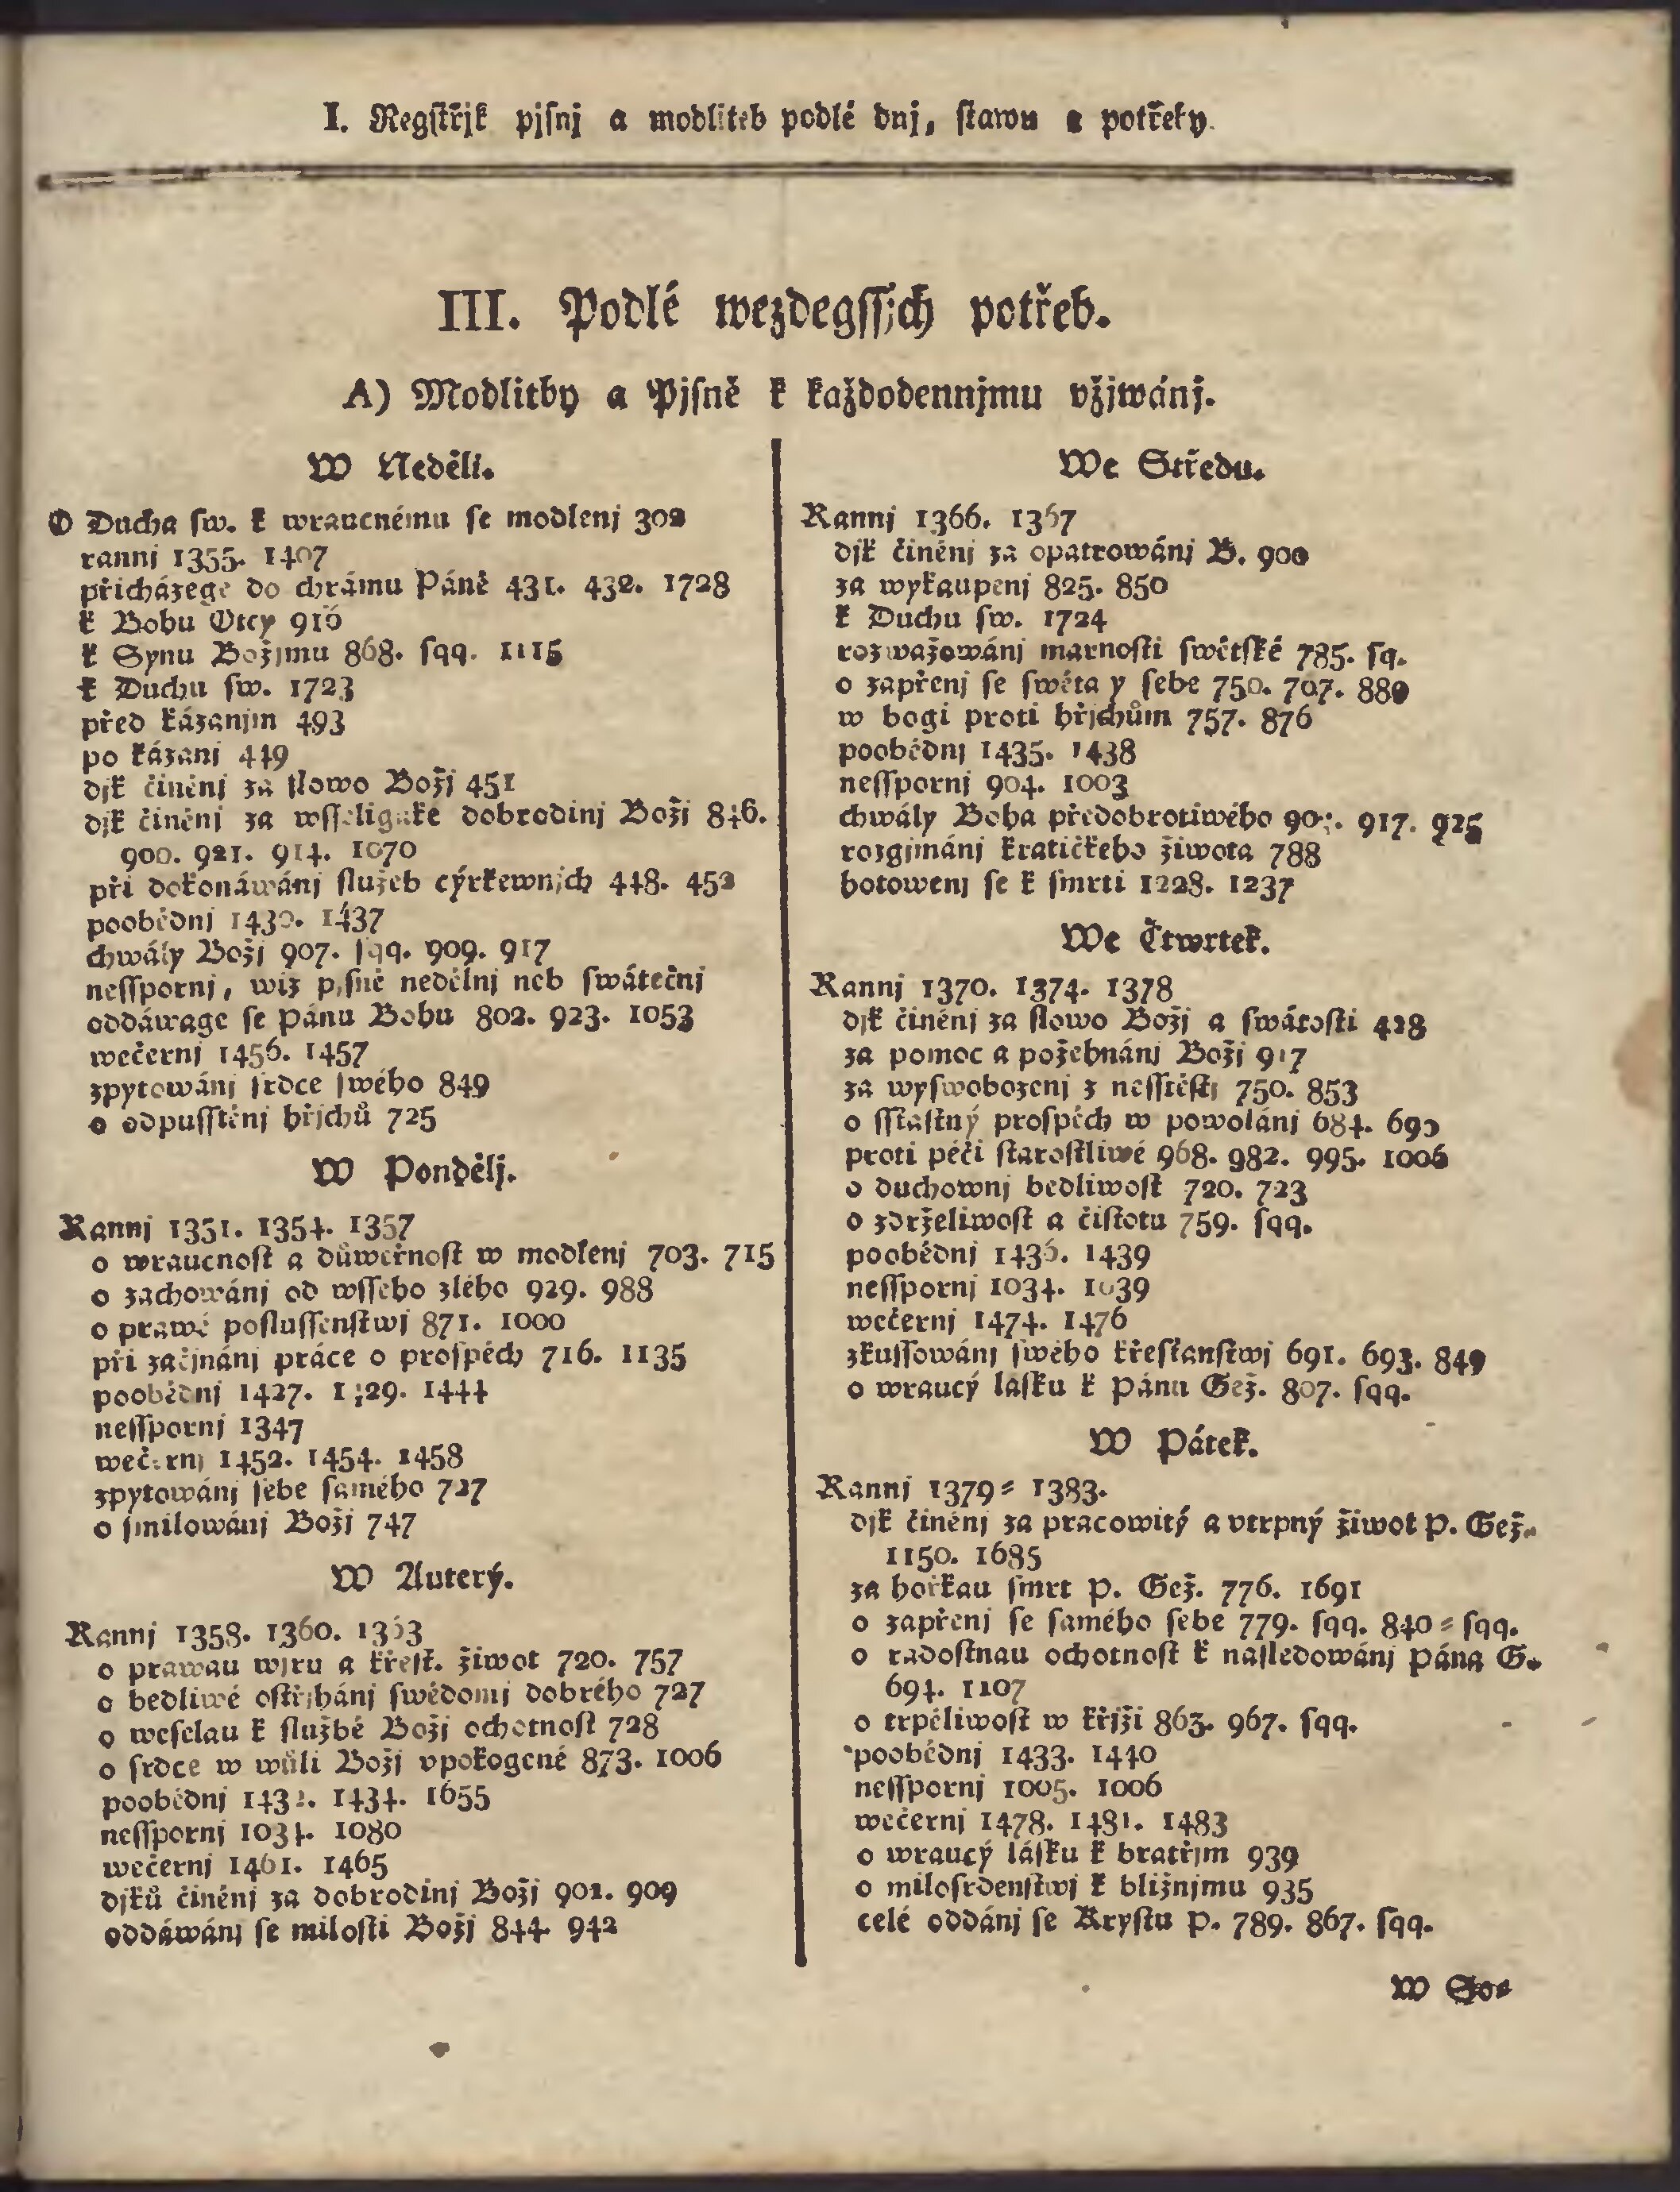 I. Regſtřjk pjſnj a modliteb podlé dnj, ſtawu a potřeby.
III. Podlé wezdegſſjch potřeb.
A) Modlitby a Pjſně k každodennjmu vžjwánj.
W Neděli.
O Ducha ſw. k wraucnému ſe modlenj 302
rannj 1355. 1407
přicházege do chrámu Páně 431. 432. 1728
k Bohu Otcy 910
k Synu Božjmu 868. ſqq. 1115
k Duchu ſw. 1723
před kázanjm 493
po kázanj 449
djk činěnj za ſlowo Božj 451
djk činěnj za wſſeligaké dobrodinj Božj 846.
900. 921. 914. 1070
při dokonáwánj ſlužeb cýrkewnjch 448. 452
poobědnj 1430. 1437
chwály Božj 907. ſqq. 909. 917
neſſpornj, wiz pjſně nedělnj neb ſwátečnj
oddáwage ſe Pánu Bohu 802. 923. 1053
wečernj 1456. 1457
zpytowánj ſrdce ſwého 849
o odpuſſtěnj hřjchů 725
W Pondělj.
Rannj 1351. 1354. 1357
o wraucnoſt a důwěrnoſt w modlenj 703. 715
o zachowánj od wſſeho zlého 929. 988
o prawé poſluſſenſtwj 871. 1000
při začjnánj práce o proſpěch 716. 1135
poobědnj 1427. 1429. 1444
neſſpornj 1347
wečernj 1452. 1454. 1458
zpytowánj ſebe ſamého 727
o ſmilowánj Božj 747
W Auterý.
Rannj 1358. 1360. 1363
o prawau wjru a křeſť. žiwot 720. 757
o bedliwé oſtřjhánj ſwědomj dobrého 727
o weſelau k ſlužbě Božj ochotnoſt 728
o ſrdce w wůli Božj vpokogené 873. 1006
poobědnj 1432. 1434. 1655
neſſpornj 1034. 1080
wečernj 1461. 1465
djků činěnj za dobrodinj Božj 902. 909
oddáwánj ſe miloſti Božj 844. 942
We Středu.
Rannj 1366. 1367
djk činěnj za opatrowánj B. 900
za wykaupenj 825. 850
k Duchu ſw. 1724
rozwažowánj marnoſti ſwětſké 785. ſq.
o zapřenj ſe ſwěta y ſebe 750. 767. 880
w bogi proti hřjchům 757. 876
poobědnj 1435. 1438
neſſpornj 904. 1003
chwály Boha předobrotiwého 917. 925
rozgjmánj kratičkeho žiwota 788
hotowenj ſe k ſmrti 1228. 1237
We Čtwrtek.
Rannj 1370. 1374. 1378
djk činěnj za ſlowo Božj a ſwátoſti 428
za pomoc a požehnánj Božj 917
za wyſwobozenj z neſſtěſtj 750. 853
o ſſťaſtný proſpěch w powolánj 684. 690
proti péči ſtaroſtliwé 968. 982. 995. 1006
o duchownj bedliwoſt 720. 723
o zdrželiwoſt a čiſtotu 759. ſqq.
poobědnj 1436. 1439
neſſpornj 1034. 1039
wečernj 1474. 1476
zkuſſowánj ſwého křeſťanſtwj 691. 693. 849
o wraucý láſku k Pánu Gež. 807. ſqq.
W Pátek.
Rannj 1379⸗ 1383.
djk činěnj za pracowitý a vtrpný žiwot P. Gež.
1150. 1685
za hořkau ſmrt P. Gež. 776. 1691
o zapřenj ſe ſamého ſebe 779. ſqq. 840⸗ ſqq.
o radoſtnau ochotnoſt k naſledowánj Pána G.
694. 1107
o trpěliwoſt w křjži 863. 967. ſqq.
poobědnj 1433. 1440
neſſpornj 1005. 1006
wečernj 1478. 1481. 1483
o wraucý láſku k bratřjm 939
o miloſrdenſtwj k bližnjmu 935
celé oddánj ſe Kryſtu P. 789. 867. ſqq.
W So⸗